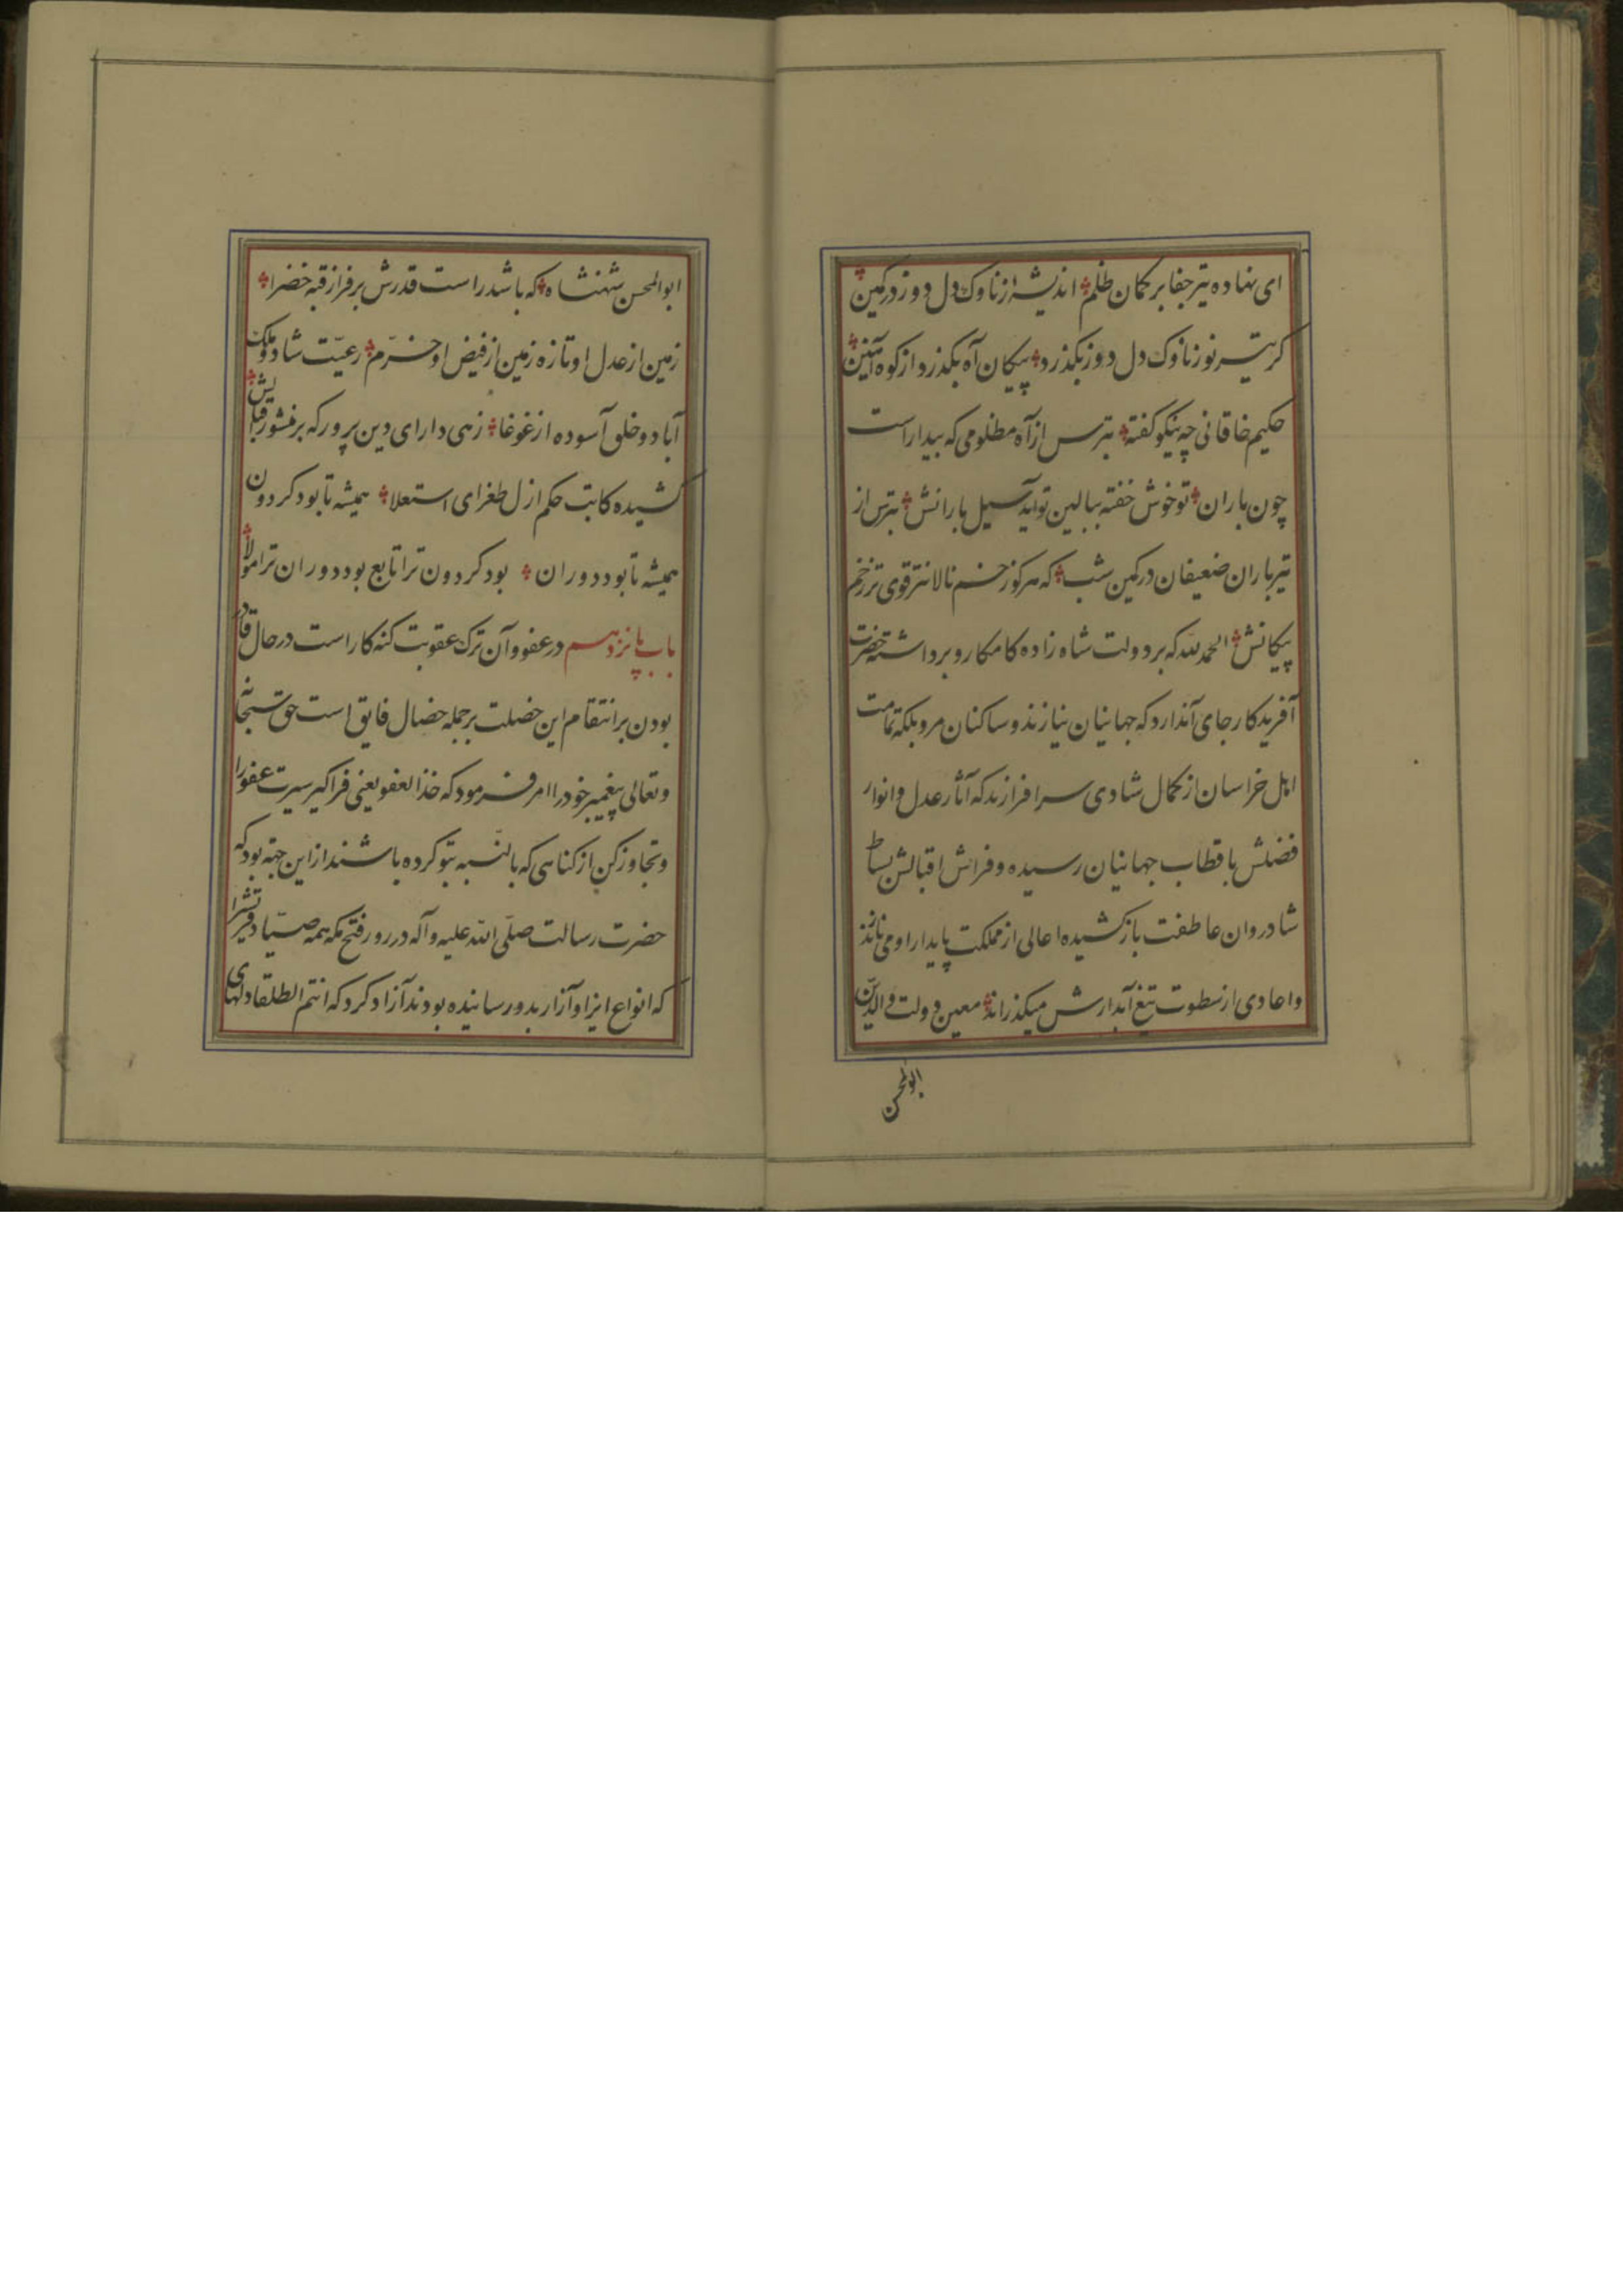 ای نهاده تیر جفا بر کمان ظلم اندیشه از ناوک دل دوز در کمین
کر تیر تو ز ناوک دل دوز بکذرد پیکان آه بکذرد از کوه آهنین
حکیم خاقانی چه نیکو کفته بترس از آه مظلومی که بیدار است
چون باران تو خوش خفته ببالین تو آید سیل بارانش بترس از
تیر باران ضعیفان در کمین شب که هر کو ز خم نالانتر قوی تر زخم
پیکانش الحمد لله که بر دولت شاه زاده کامکار و برداشته حضرت
آفریدکار جای آندارد که جهانیان بنازند و ساکنان مرو بلکه تمامت
اهل خراسان از کمال شادی سر افرازند که آثار عدل و انوار
فضلش باقطاب جهانیان رسیده و فراش اقبالش بساط
شادروان عاطفت باز کشیده اعالی از مملکت پایدار او می نازند
و اعادی از سطوت تیغ آبدارش میکذرانند معین دولت و الدین
ابوالمحسن
ابوالمحسن شهنشاه که باشد راست قدرش بر فراز قبه خضرا
زمین از عدل او تازه زمین از فیض او خرّم رعیّت شاد و ملک
آباد و خلق آسوده از غوغا زهی دارای دین پرور که بر منشور اقبالش
کشیده کاتب حکم ازل طغرای استعلا همیشه تا بود کردون
همیشه تا بود دوران بود کردون ترا تابع بود دوران ترا مولا
باب پانزدهم در عفو و آن ترک عقوبت کنه کار است در حال قادر
بودن بر انتقام این خصلت بر جمله خصال فایق است حق سبحانه
و تعالی پیغمبر خود را امر فرمود که خذ العفو یعنی فراکیر سیرت عفو را
و تجاوز کن از کناهی که بالنسبه بتو کرده باشند از این جهته بود که
حضرت رسالت صلّی الله علیه و آله در روز فتح مکه همه صنادید قریش را
که انواع ایزا و آزار بدو رسانیده بودند آزاد کرد که انتم الطلقا و دلهای